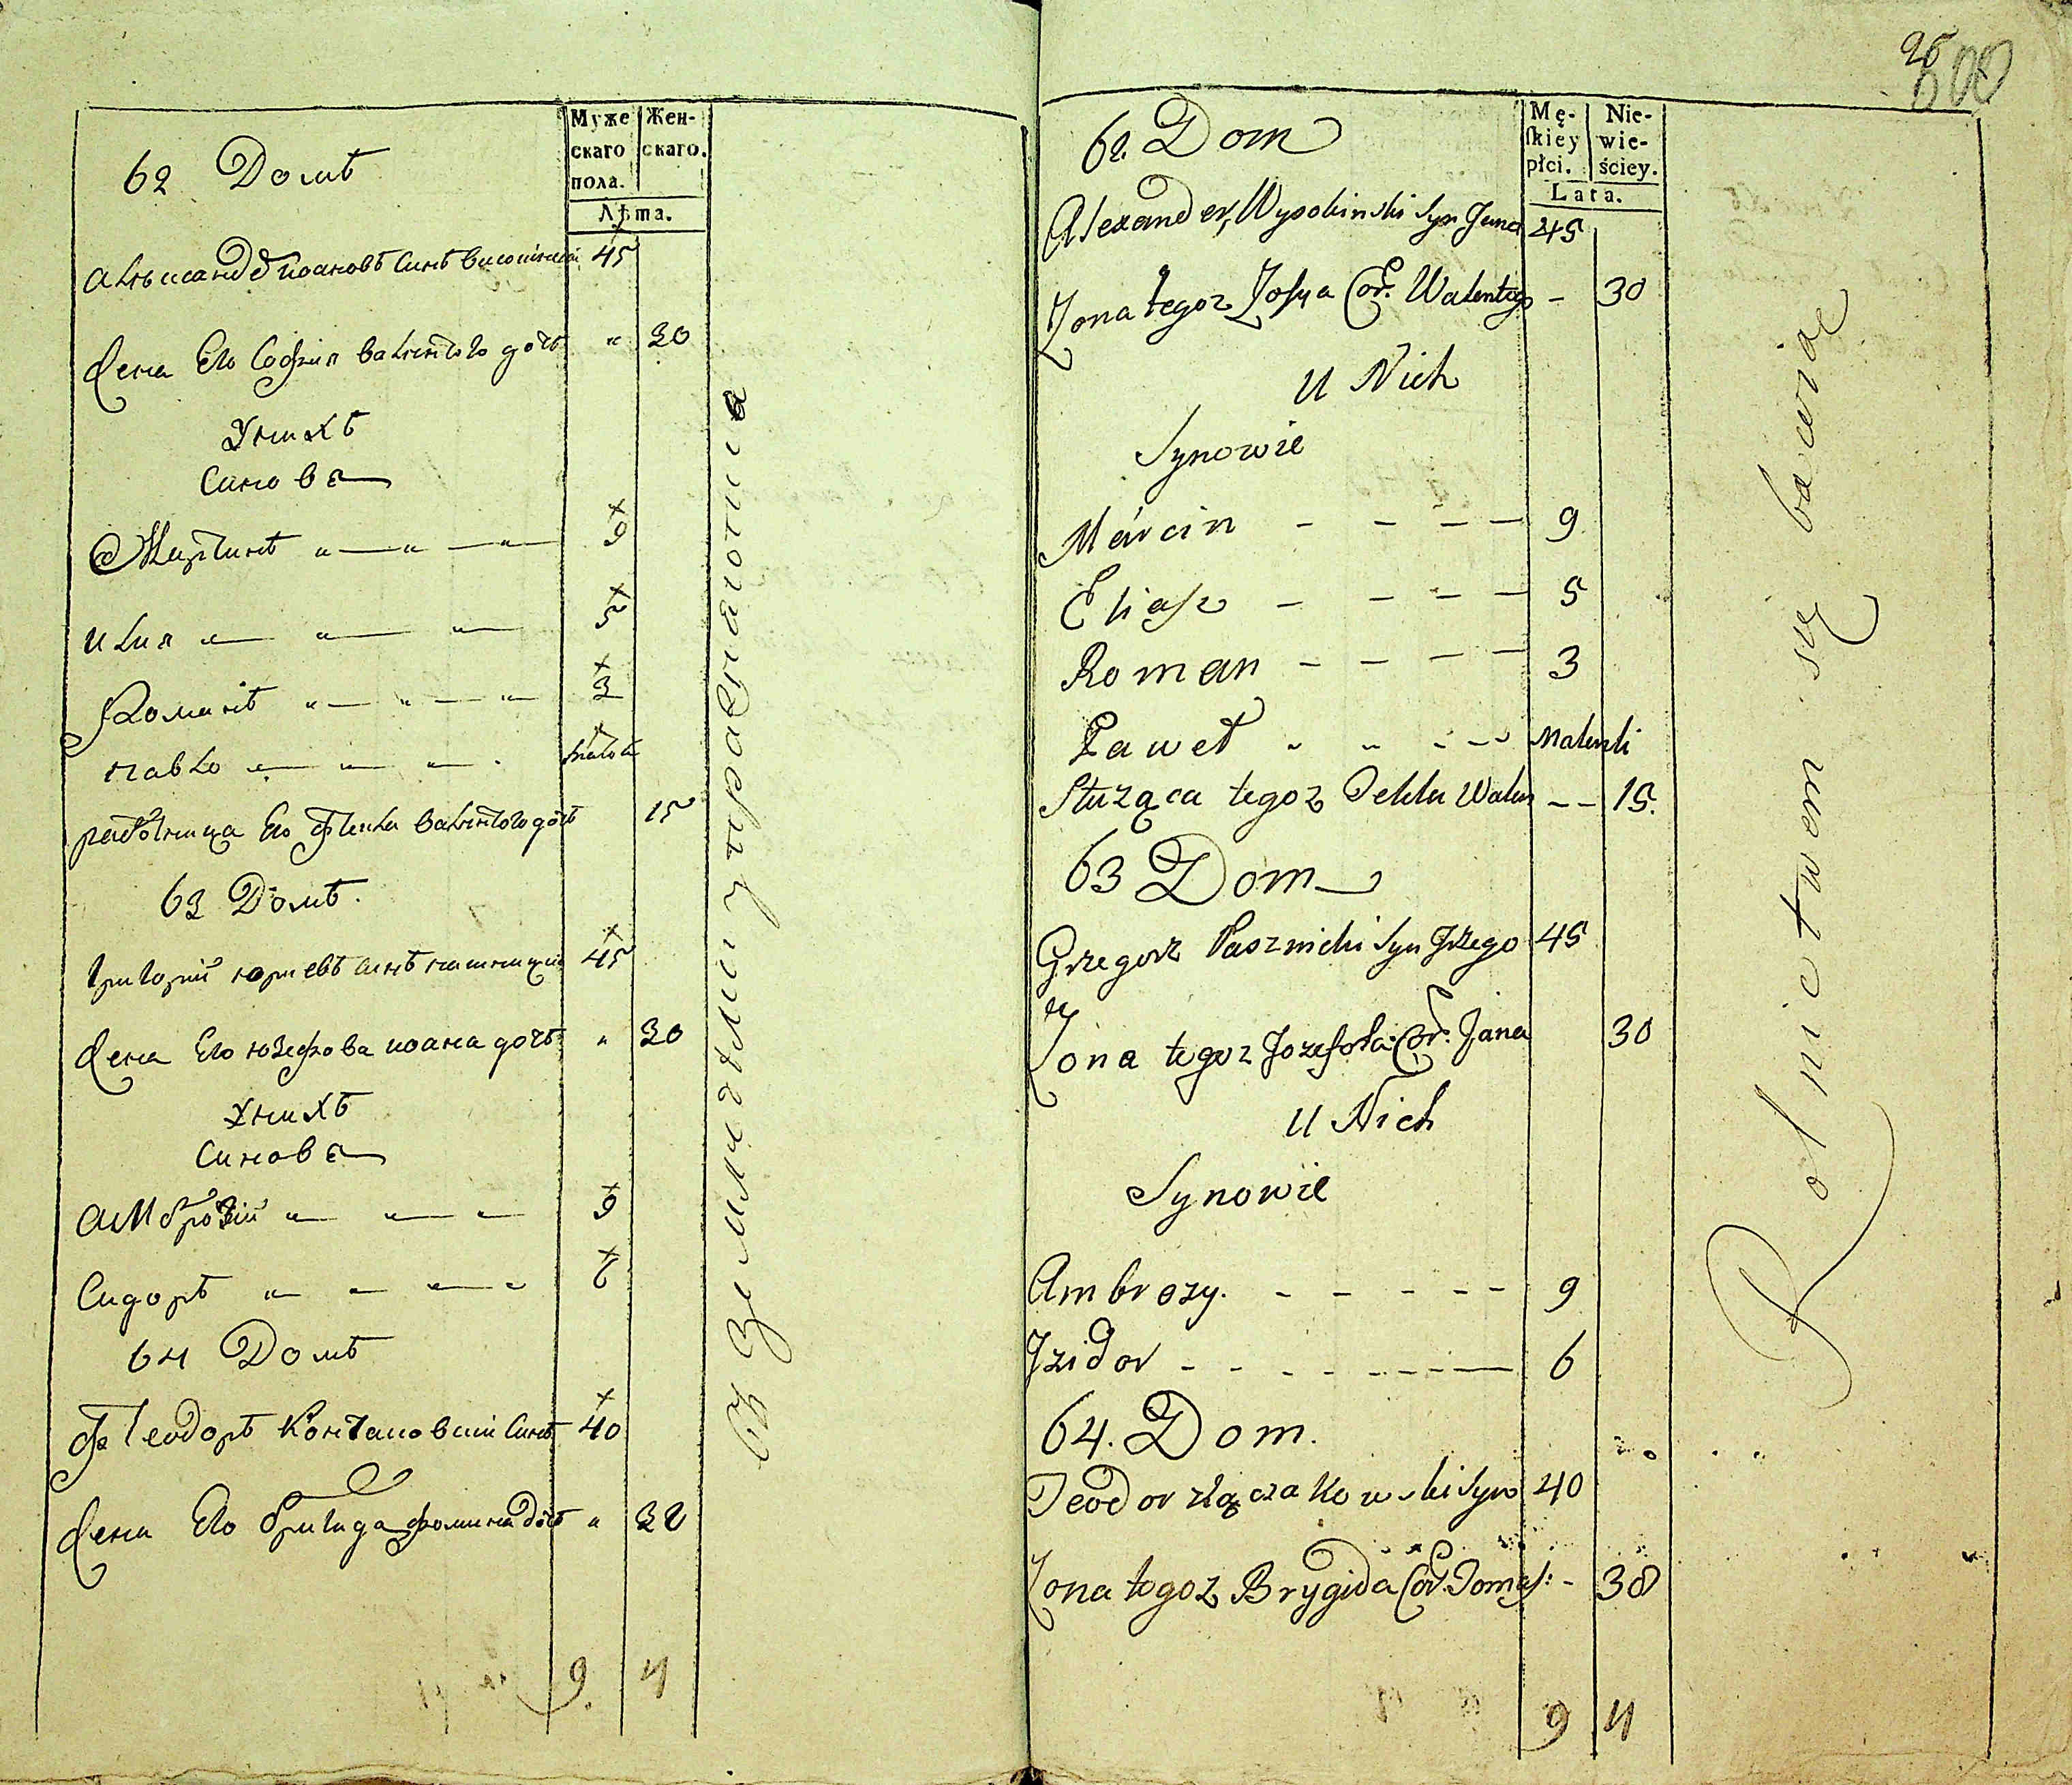 Муже
скаго
пола.
Жен-
скаго.
Лѣта.
62 Домъ
Алѣксандеръ Иоановъ синъ Висоцкий 45
Жена Его София Валентого дочъ " 30
У нихъ
Синове
Мартинъ 9
Илия 5
Романъ 3
Павло
работница Его Текля Валентого дочъ 15
63 Домъ.
Григорий Юриевъ синъ 45
Жена Его Юзефова Иоана дочъ " 30
У нихъ
Синове
Амброзий 9
Сидоръ 6
64 Домъ
Теодоръ синъ 40
Жена Его Бригида Фомина дочъ " 38
9. 4
управляютца
95
62. Dom
Mę-
skiey
płci.
Nie-
wie-
ściey.
Lata.
Alexander Wysokinski Syn Jana 45
Żona tegoz Zofija Cor. Walentego – 30
U Nich
Synowie
Marcin - - - - 9
Eliasz - - - - 5
Roman - - - - 3
Paweł - - - - Malenki
Służąca tegoz Tekla Walen - - 15.
63 Dom
Grzegorz Pasznicki Syn Jrzego 45
Żona tegoz Jozefota Cor. Jana 30
U Nich
Synowie
Ambrozy. - - - - - 9
Izidor - - - - - - - 6
64. Dom.
Teodor Syn 40
Żona togoz Brygida Cor. Tomasz: - 38
9 4
Rolnictwem się bawią